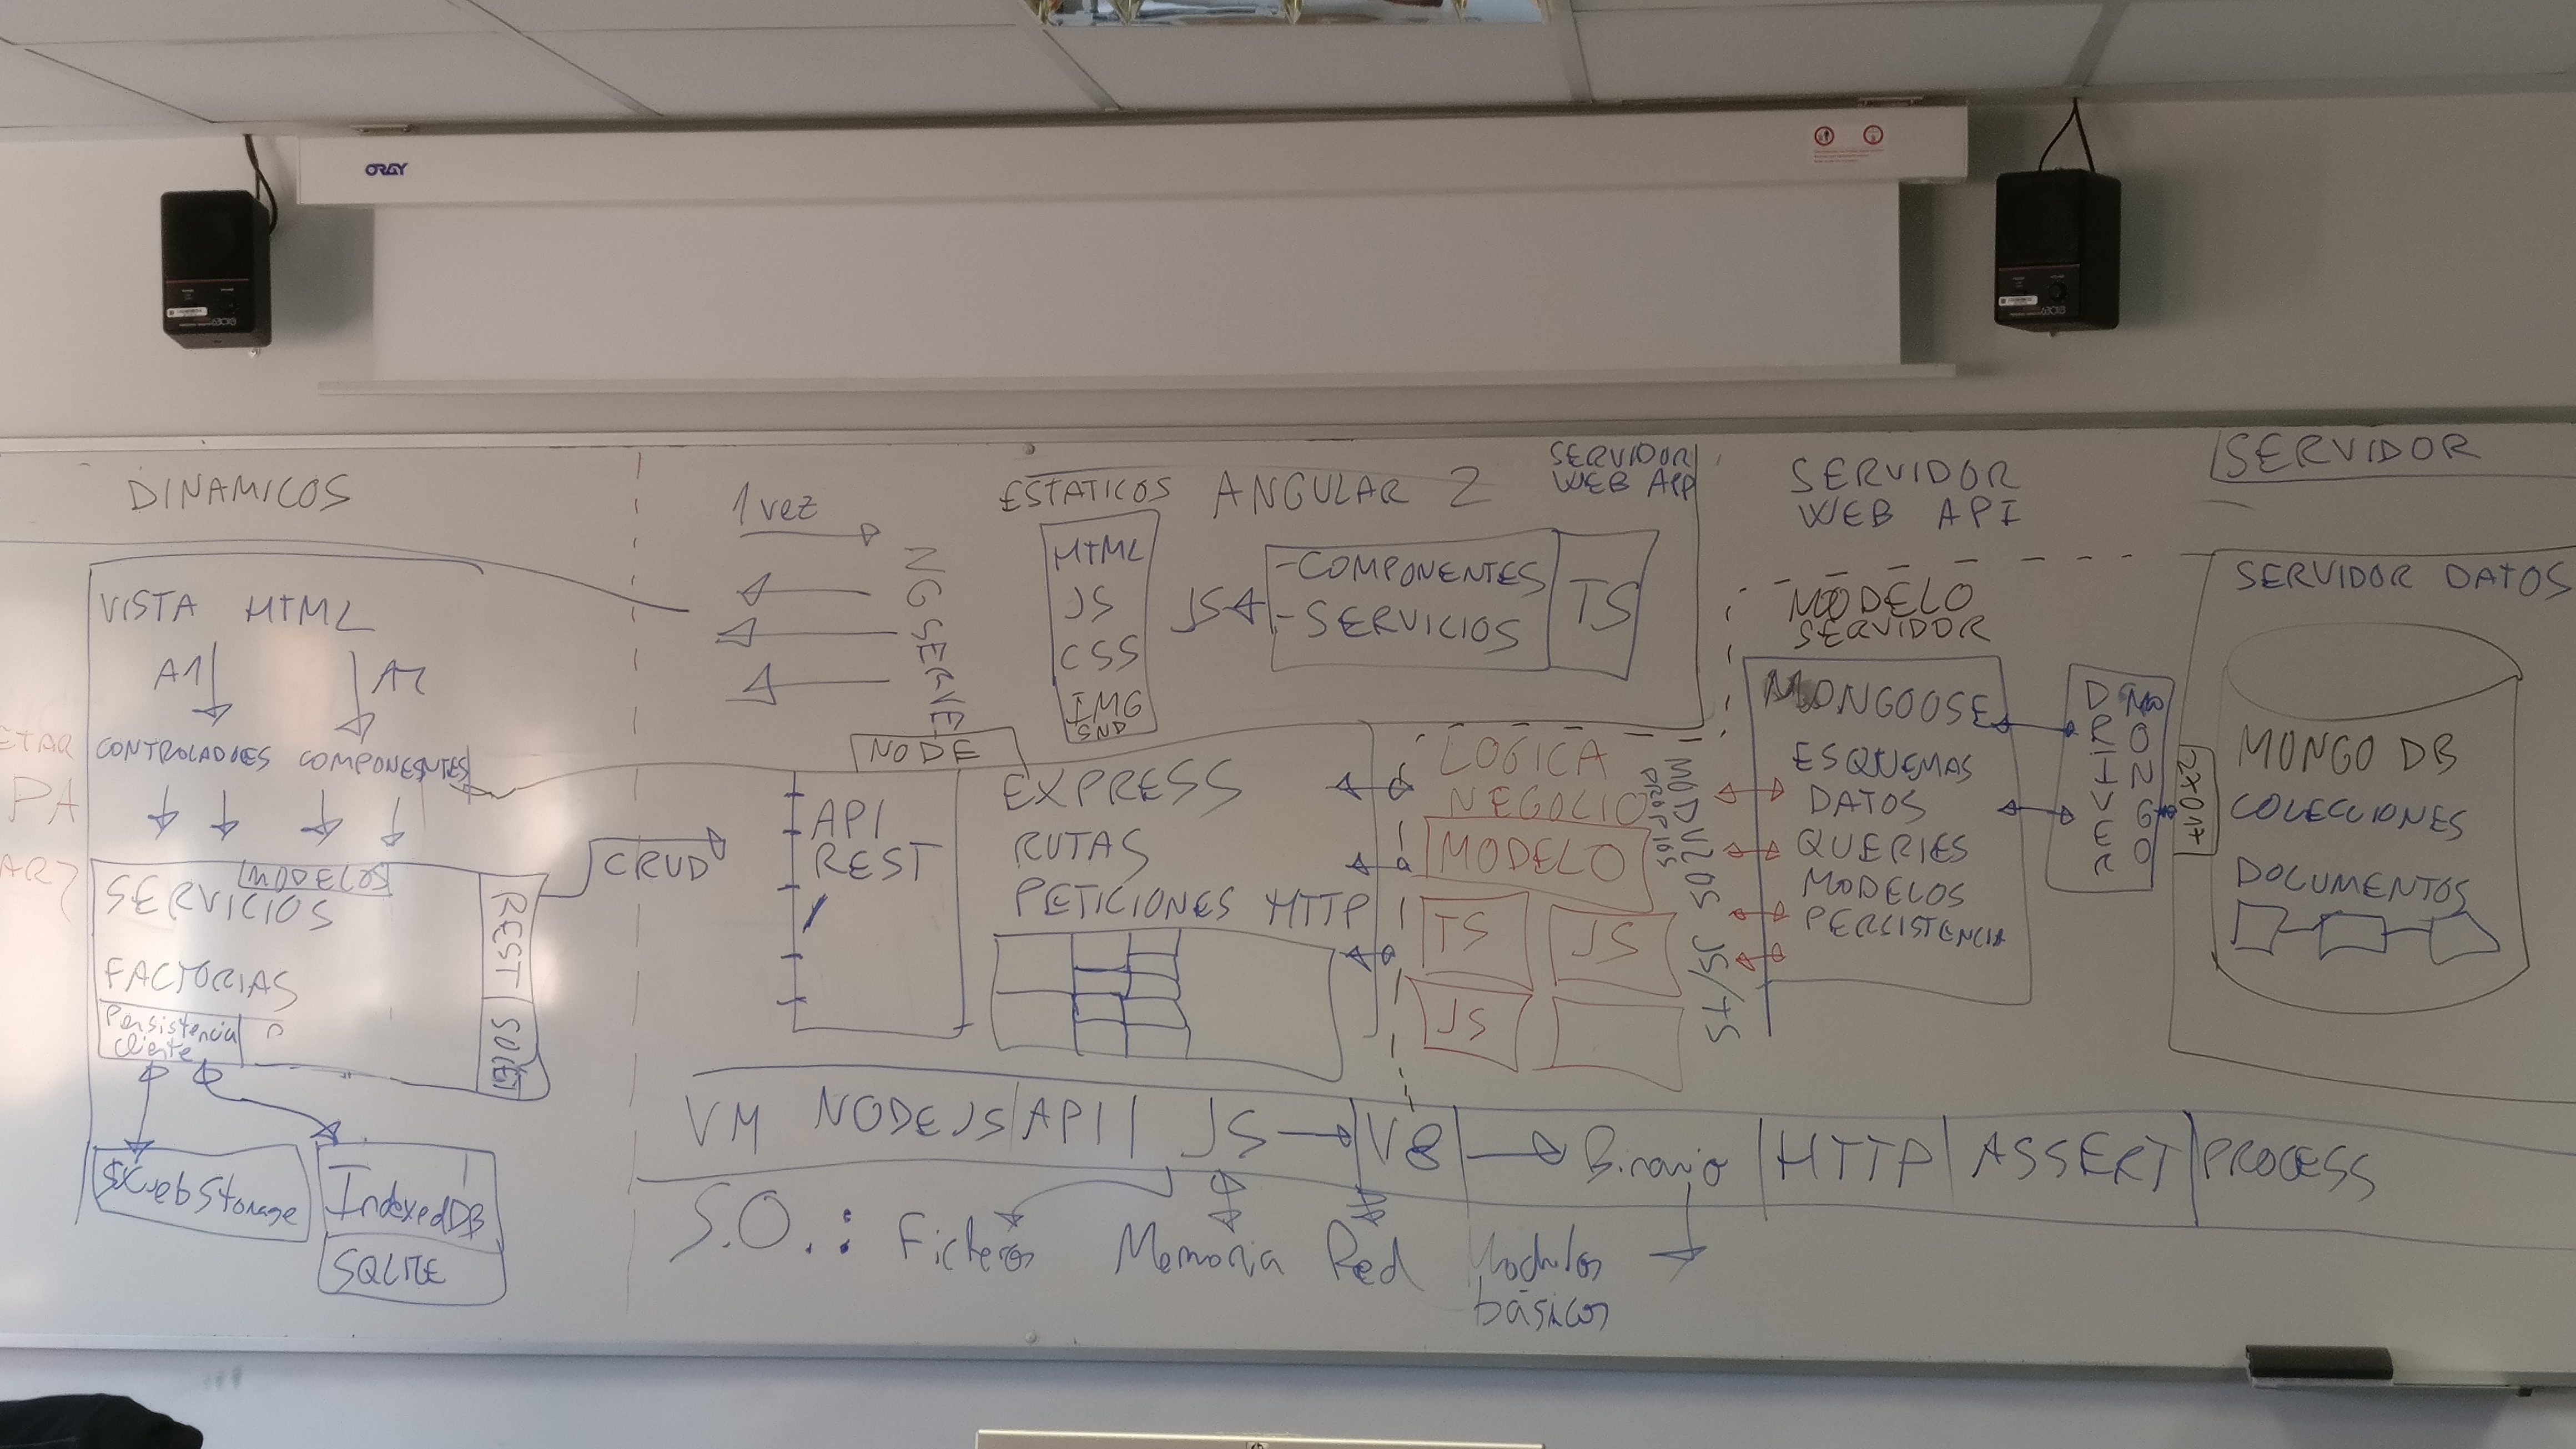 ORAY
DINAMICOS
VISTA HTML
A1
CONTROLADORES COMPONENTES
MODELOS
SERVICIOS
FACTORIAS
Persistencia
cliente
REST
WebStorage
IndexedDB
SQLITE
CRUD
1 vez
NG SERVE
ESTATICOS
HTML
JS
CSS
IMG
SND
ANGULAR 2
SERVIDOR
WEB APP
JS
-COMPONENTES
-SERVICIOS
TS
NODE
API
REST
/
EXPRESS
RUTAS
PETICIONES HTTP
LOGICA
NEGOCIO
MODELO
TS
JS
JS
MODULOS JS/TS
PROPIOS
SERVIDOR
WEB API
MODELO
SERVIDOR
MONGOOSE
ESQUEMAS
DATOS
QUERIES
MODELOS
PERSISTENCIA
DRIVER
MONGO
SERVIDOR
SERVIDOR DATOS
MONGO DB
COLECCIONES
DOCUMENTOS
VM NODEJS API JS V8 Binario HTTP ASSERT PROCESS
S.O.: Ficheros Memoria Red Modulos
básicos